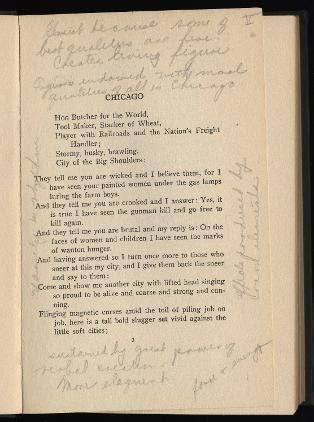 II
because some of
best qualities are here
Creates living figure
Figure endowed with moral
qualities of all in Chicago
CHICAGO
Hog Butcher for the World,
Tool Maker, Stacker of Wheat,
Player with Railroads and the Nation's Freight
Handler;
Stormy, husky, brawling,
City of the Big Shoulders:
They tell me you are wicked and I believe them, for I
have seen your painted women under the gas lamps
luring the farm boys.
And they tell me you are crooked and I answer: Yes, it
is true I have seen the gunman kill and go free to
kill again.
And they tell me you are brutal and my reply is: On the
faces of women and children I have seen the marks
of wanton hunger.
And having answered so I turn once more to those who
sneer at this my city, and I give them back the sneer
and say to them:
Come and show me another city with lifted head singing
so proud to be alive and coarse and strong and cun-
ning.
Flinging magnetic curses amid the toil of piling job on
job, here is a tall bold slugger set vivid against the
little soft cities;
3
sustained by great power of
verbal
More eloquent
force & energy
produced by